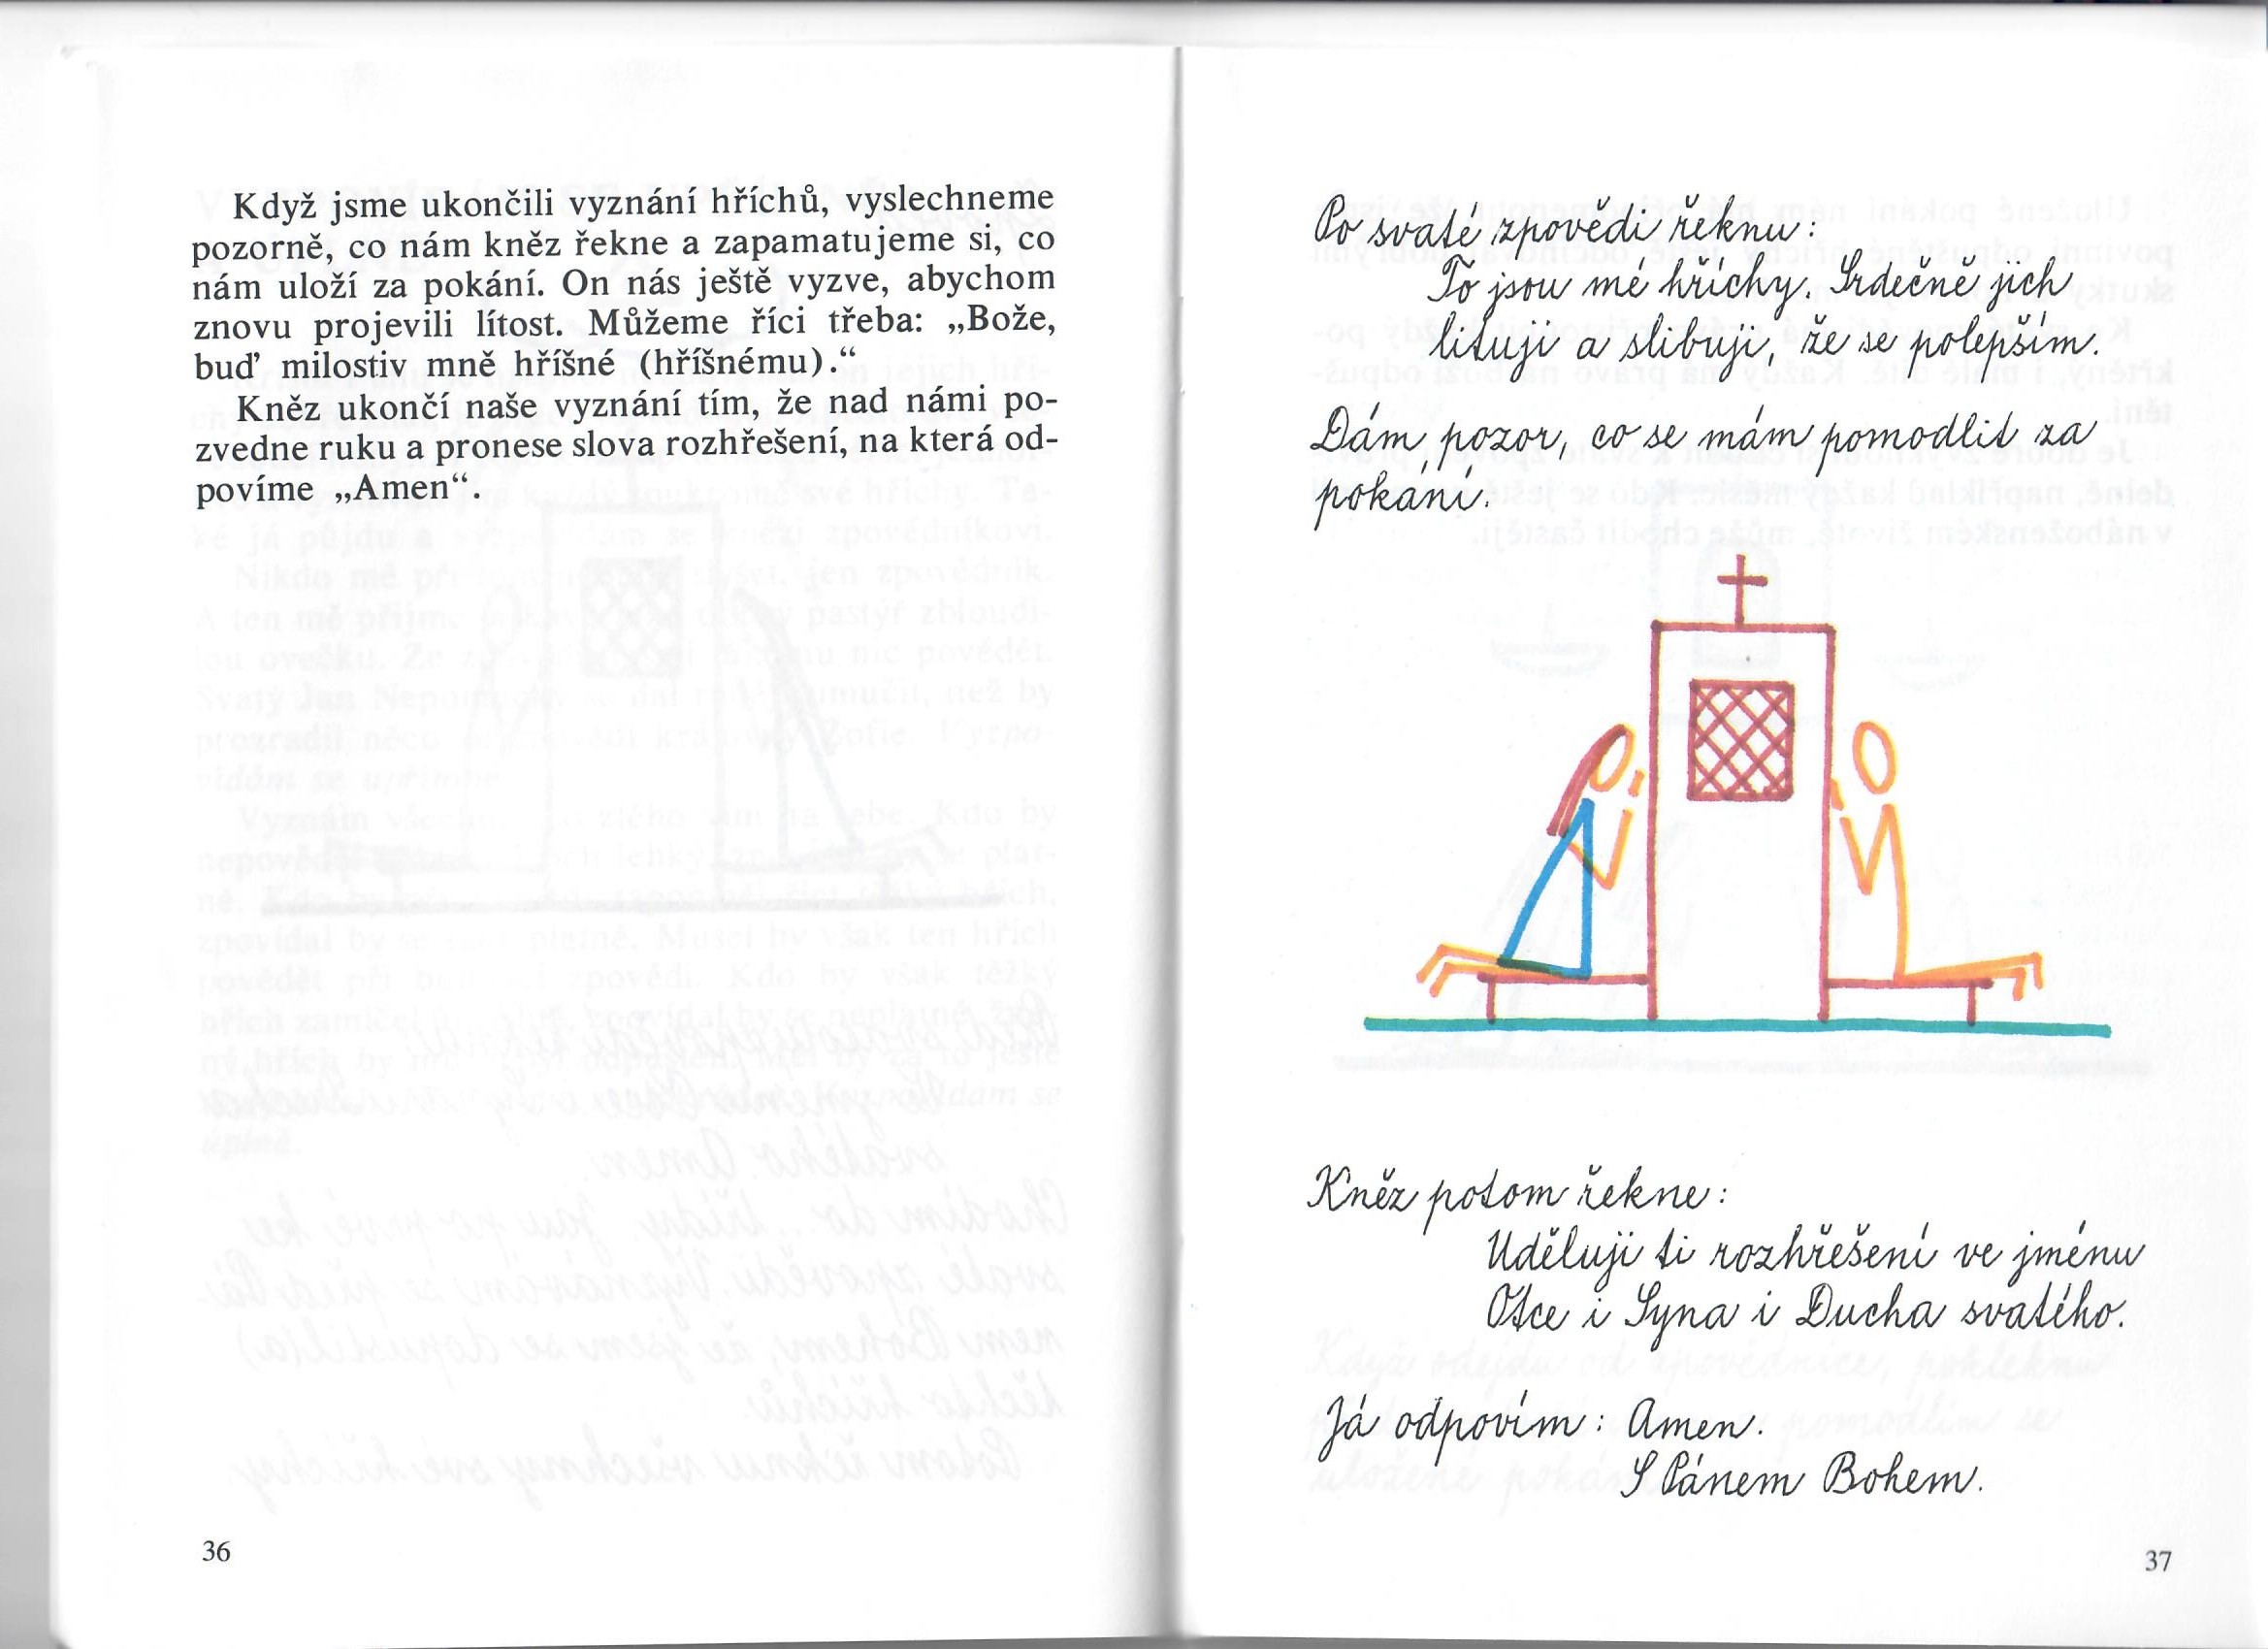 Když jsme ukončili vyznání hříchů, vyslechneme
pozorně, co nám kněz řekne a zapamatujeme si, co
nám uloží za pokání. On nás ještě vyzve, abychom
znovu projevili lítost. Můžeme říci třeba: „Bože,
buď milostiv mně hříšné (hříšnému).“
Kněz ukončí naše vyznání tím, že nad námi po-
zvedne ruku a pronese slova rozhřešení, na která od-
povíme „Amen“.
36
Po svaté zpovědi řeknu:
To jsou mé hříchy. Srdečně jich
lituji a slibuji, že se polepším.
Dám pozor, co se mám pomodlit za
pokání.
Kněz potom řekne:
Uděluji ti rozhřešení ve jménu
Otce i Syna i Ducha svatého.
Já odpovím: Amen.
S Pánem Bohem.
37